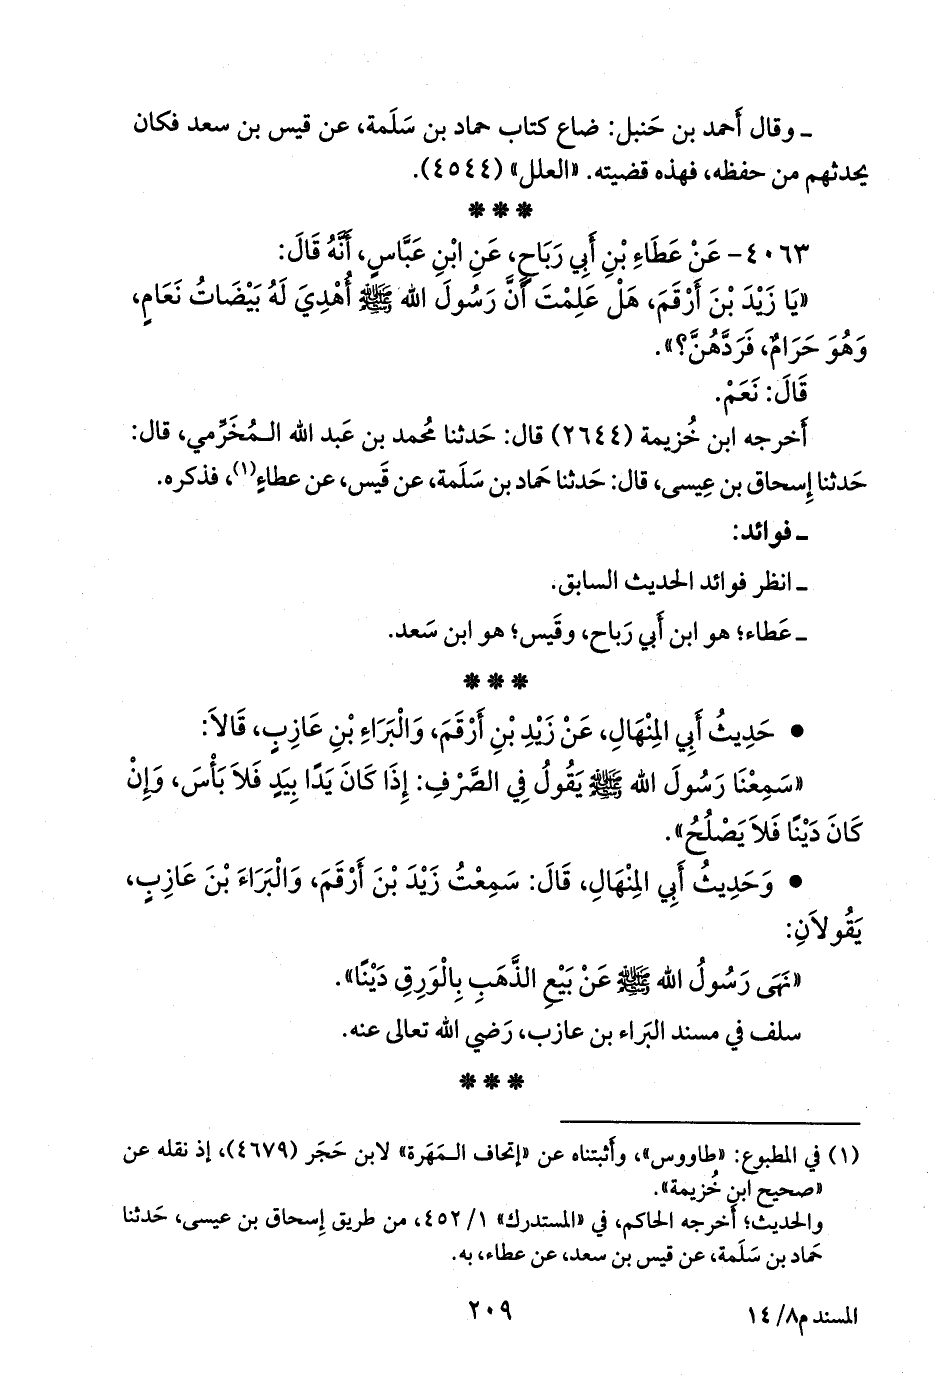 ـ وقال أَحمد بن حَنبل: ضاع كتاب حماد بن سَلَمة، عن قيس بن سعد فكان
يحدثهم من حفظه، فهذه قضيته. «العلل» (٤٥٤٤).
* * *
٤٠٦٣- عَنْ عَطَاءِ بْنِ أَبِي رَبَاحٍ، عَنِ ابْنِ عَبَّاسٍ، أَنَّهُ قَالَ:
«يَا زَيْدَ بْنَ أَرْقَمَ، هَلْ عَلِمْتَ أَنَّ رَسُولَ الله ﷺ أُهْدِيَ لَهُ بَيْضَاتُ نَعَامٍ،
وَهُوَ حَرَامٌ، فَرَدَّهُنَّ؟».
قَالَ: نَعَمْ.
أَخرجه ابن خُزيمة (٢٦٤٤) قال: حَدثنا مُحمد بن عَبد الله الـمُخَرِّمي، قال:
حَدثنا إِسحاق بن عِيسى، قال: حَدثنا حَماد بن سَلَمة، عن قَيس، عن عطاءٍ(١)، فذكره.
ـ فوائد:
ـ انظر فوائد الحديث السابق.
ـ عَطاء؛ هو ابن أَبي رَباح، وقَيس؛ هو ابن سَعد.
* * *
• حَدِيثُ أَبِي المِنْهَالِ، عَنْ زَيْدِ بْنِ أَرْقَمَ، وَالْبَرَاءِ بْنِ عَازِبٍ، قَالاَ:
«سَمِعْنَا رَسُولَ الله ﷺ يَقُولُ فِي الصَّرْفِ: إِذَا كَانَ يَدًا بِيَدٍ فَلاَ بَأْسَ، وَإِنْ
كَانَ دَيْنًا فَلاَ يَصْلُحُ».
• وَحَدِيثُ أَبِي المِنْهَالِ، قَالَ: سَمِعْتُ زَيْدَ بْنَ أَرْقَمَ، وَالْبَرَاءَ بْنَ عَازِبٍ،
يَقُولاَنِ:
«نَهَى رَسُولُ الله ﷺ عَنْ بَيْعِ الذَّهَبِ بِالْوَرِقِ دَيْنًا».
سلف في مسند البَراء بن عازب، رَضي الله تعالى عنه.
* * *
(١) في المطبوع: «طاووس»، وأَثبتناه عن «إتحاف الـمَهَرة» لابن حَجَر (٤٦٧٩)، إذ نقله عن
«صحيح ابن خُزيمة».
والحديث؛ أَخرجه الحاكم، في «المستدرك» ١/ ٤٥٢، من طريق إِسحاق بن عيسى، حَدثنا
حَماد بن سَلَمة، عن قيس بن سعد، عن عطاء، به.
المسند م٨/ ١٤
٢٠٩